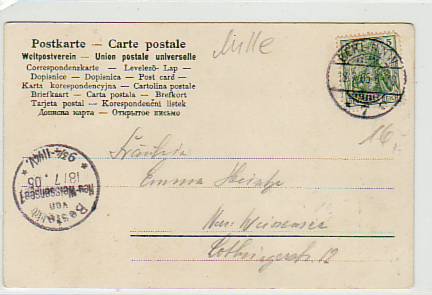 Postkarte — Carte postale
Weltpostverein — Union postale universelle
Correspondenzkarte — Levelezö-Lap —
Dopisnice — Dopisnica — Post card —
Karta korespondencyjna — Cartolina postale
Briefkaart — Carta postala — Brefkort
Tarjeta postal — Korespondenční lístek
Дописна карта — Открытое письмо
5
16,-
Fräulein
Emma
Neu-Weissensee
Lothringerstr. 12
Bestellt
von
Neu-Weissensee
18/7. 05